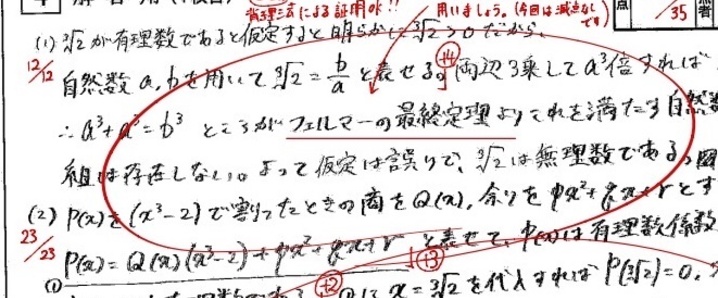 背理法による証明OK!! 用いましょう。(今回は減点なしです)
35
(1) ∛2が有理数であると仮定すると明らかに∛2>0だから、
12/12 自然数a,bを用いて ∛2 = b/a と表せる。両辺3乗してa³倍すれば
+4
∴ a³+a³=b³ ところがフェルマーの最終定理よりこれを満たす自然数
組は存在しない。よって仮定は誤りで、∛2は無理数である。
(2) P(x)を(x³-2)で割ったときの商をQ(x), 余りをpx²+qx+rとす
23/23
P(x)=Q(x)(x³-2)+px²+qx+r と表せて、P(x)は有理数係数
① +2 +3
x=∛2を代入すれば P(∛2)=0,